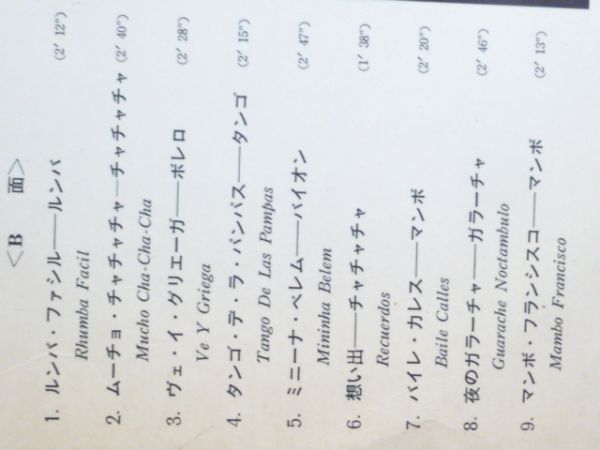 <B 面>
1. ルンバ・ファシル――ルンバ (2′ 12″)
Rhumba Facil
2. ムーチョ・チャチャチャ―チャチャチャ (2′ 40″)
Mucho Cha-Cha-Cha
3. ヴェ・イ・グリエーガ――ボレロ (2′ 28″)
Ve Y Griega
4. タンゴ・デ・ラ・パンパス――タンゴ (2′ 15″)
Tango De Las Pampas
5. ミニーナ・ベレム――バイオン (2′ 47″)
Mininha Belem
6. 想い出――チャチャチャ (1′ 38″)
Recuerdos
7. バイレ・カレス――マンボ (2′ 20″)
Baile Calles
8. 夜のガラーチャ――ガラーチャ (2′ 46″)
Guarache Noctambulo
9. マンボ・フランシスコ――マンボ (2′ 13″)
Mambo Francisco